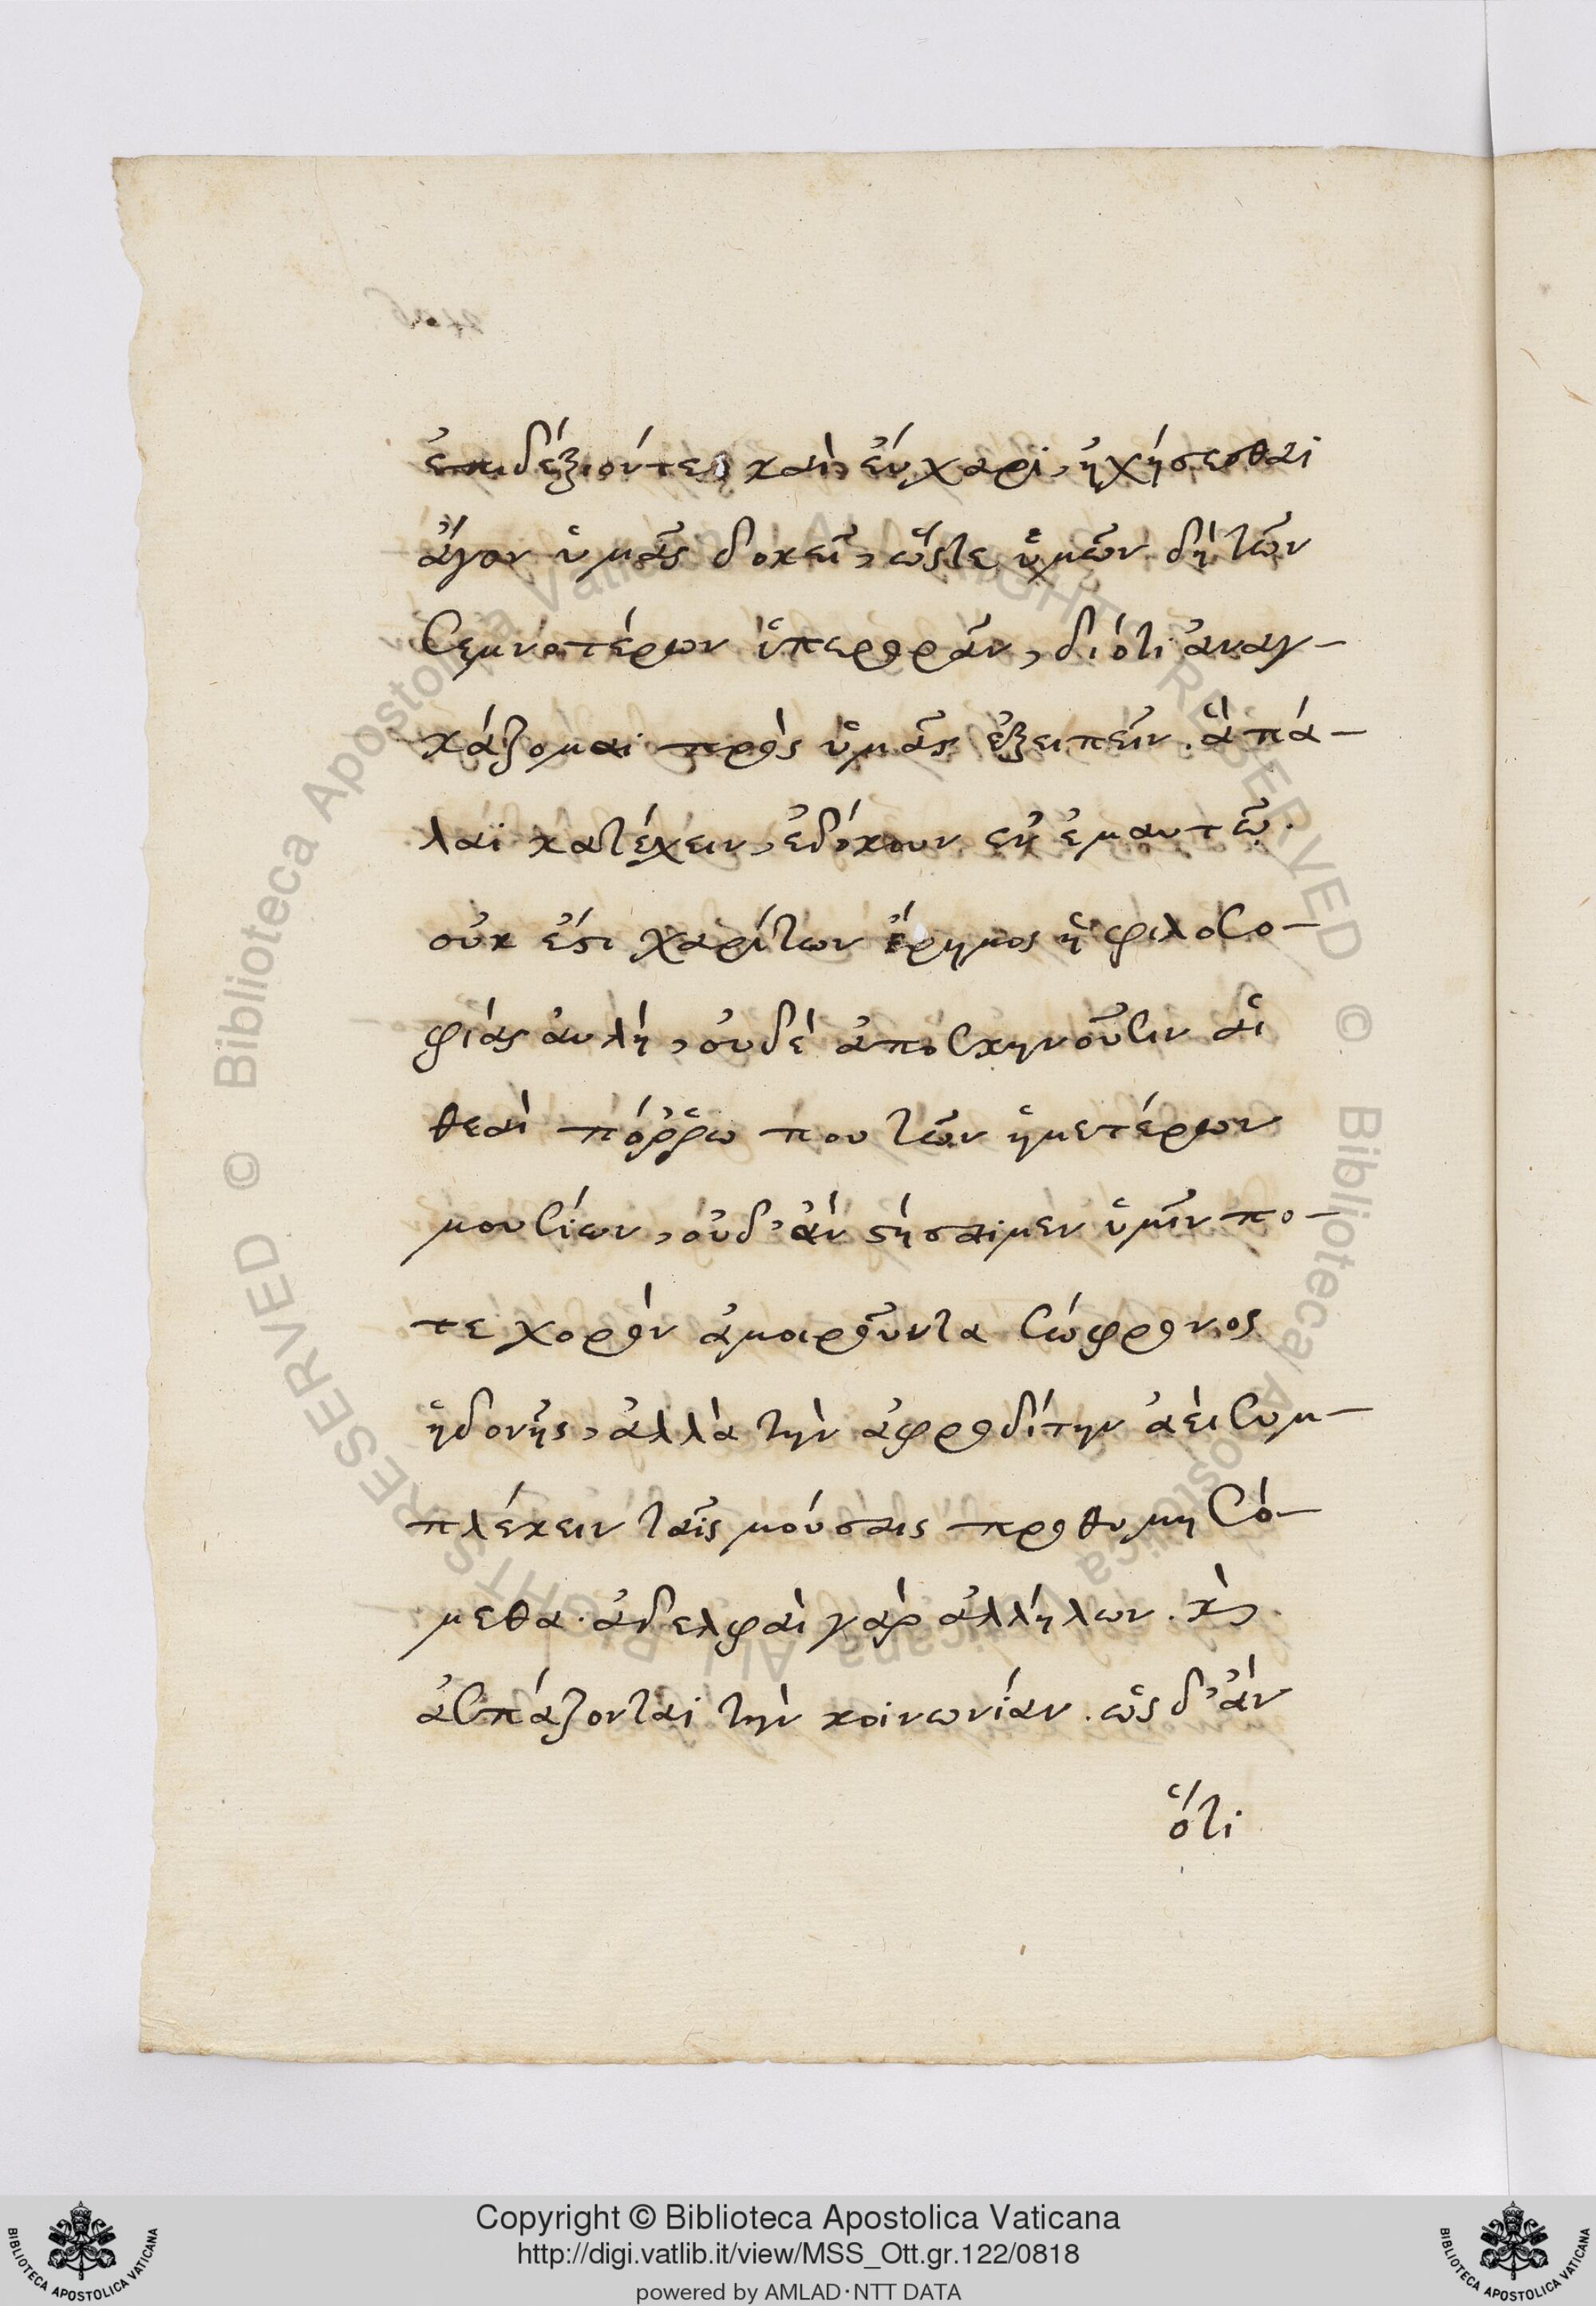 ἐπιδέξιόν τε καὶ ἐύχαρι, ἠχήσεσθαι
ἄγον ὑμᾶς δοκεῖ, ὥστε ὑμῶν δὴ τῶν
σεμνοτέρων ὑπερορᾶν, διότι ἀναγ-
κάζομαι πρὸς ὑμᾶς ἐξειπεῖν. ἃ πά-
λαι κατέχειν, ἐδόκουν ἐν ἐμαυτῶ.
οὐκ ἔστι χαρίτων ἔρημος ἡ φιλοσο-
φίας ἀυλὴ, ὀυδὲ ἀποσκηνοῦσιν αἱ
θεαὶ πόῤῥω που τῶν ἡμετέρων
μουσίων, ὀυδ' ἂν στήσαιμεν ὑμῖν πο-
τε χορὸν ἀμοιροῦντα σώφρονος
ἡδονῆς, ἀλλὰ τὴν ἀφροδίτην ἀεὶ συμ-
πλέκειν ταῖς μούσαις προθυμησό-
μεθα. ἀδελφαὶ γὰρ ἀλλήλων. καὶ
ἀσπάζονται τὴν κοινωνίαν. ὡς δ' ἂν
ὅτι
© Biblioteca Apostolica Vaticana ALL RIGHTS RESERVED © Biblioteca Apostolica Vaticana ALL RIGHTS RESERVED
Copyright © Biblioteca Apostolica Vaticana
http://digi.vatlib.it/view/MSS_Ott.gr.122/0818
powered by AMLAD·NTT DATA
BIBLIOTECA APOSTOLICA VATICANA
BIBLIOTECA APOSTOLICA VATICANA